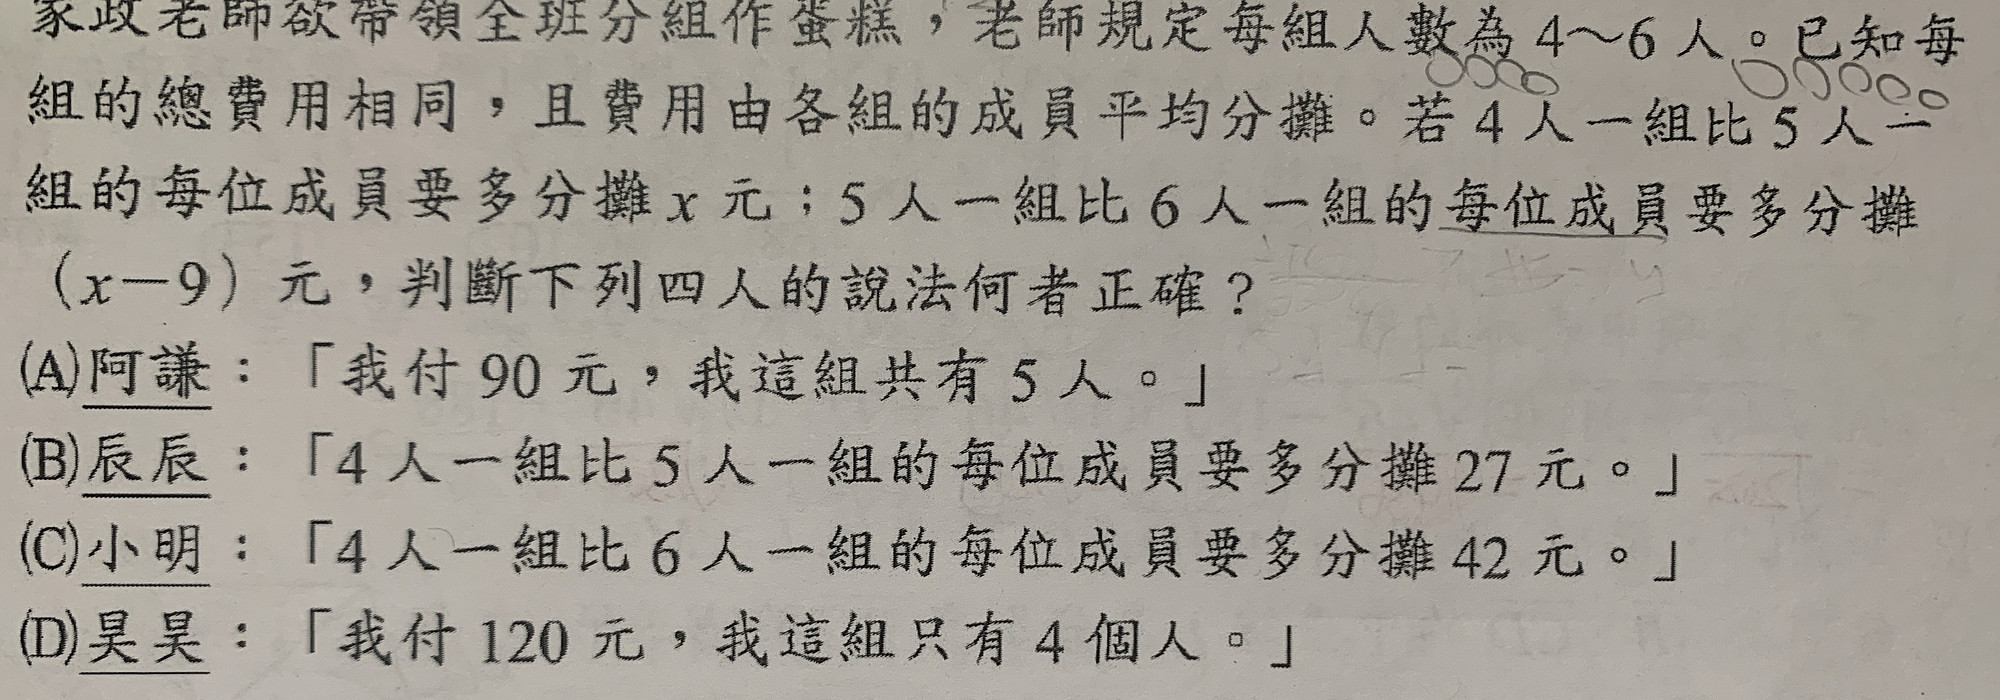 家政老師欲帶領全班分組作蛋糕，老師規定每組人數為 4～6 人。已知每
組的總費用相同，且費用由各組的成員平均分攤。若 4 人一組比 5 人一
組的每位成員要多分攤 x 元；5 人一組比 6 人一組的每位成員要多分攤
（x－9）元，判斷下列四人的說法何者正確？
(A)阿謙：「我付 90 元，我這組共有 5 人。」
(B)辰辰：「4 人一組比 5 人一組的每位成員要多分攤 27 元。」
(C)小明：「4 人一組比 6 人一組的每位成員要多分攤 42 元。」
(D)昊昊：「我付 120 元，我這組只有 4 個人。」